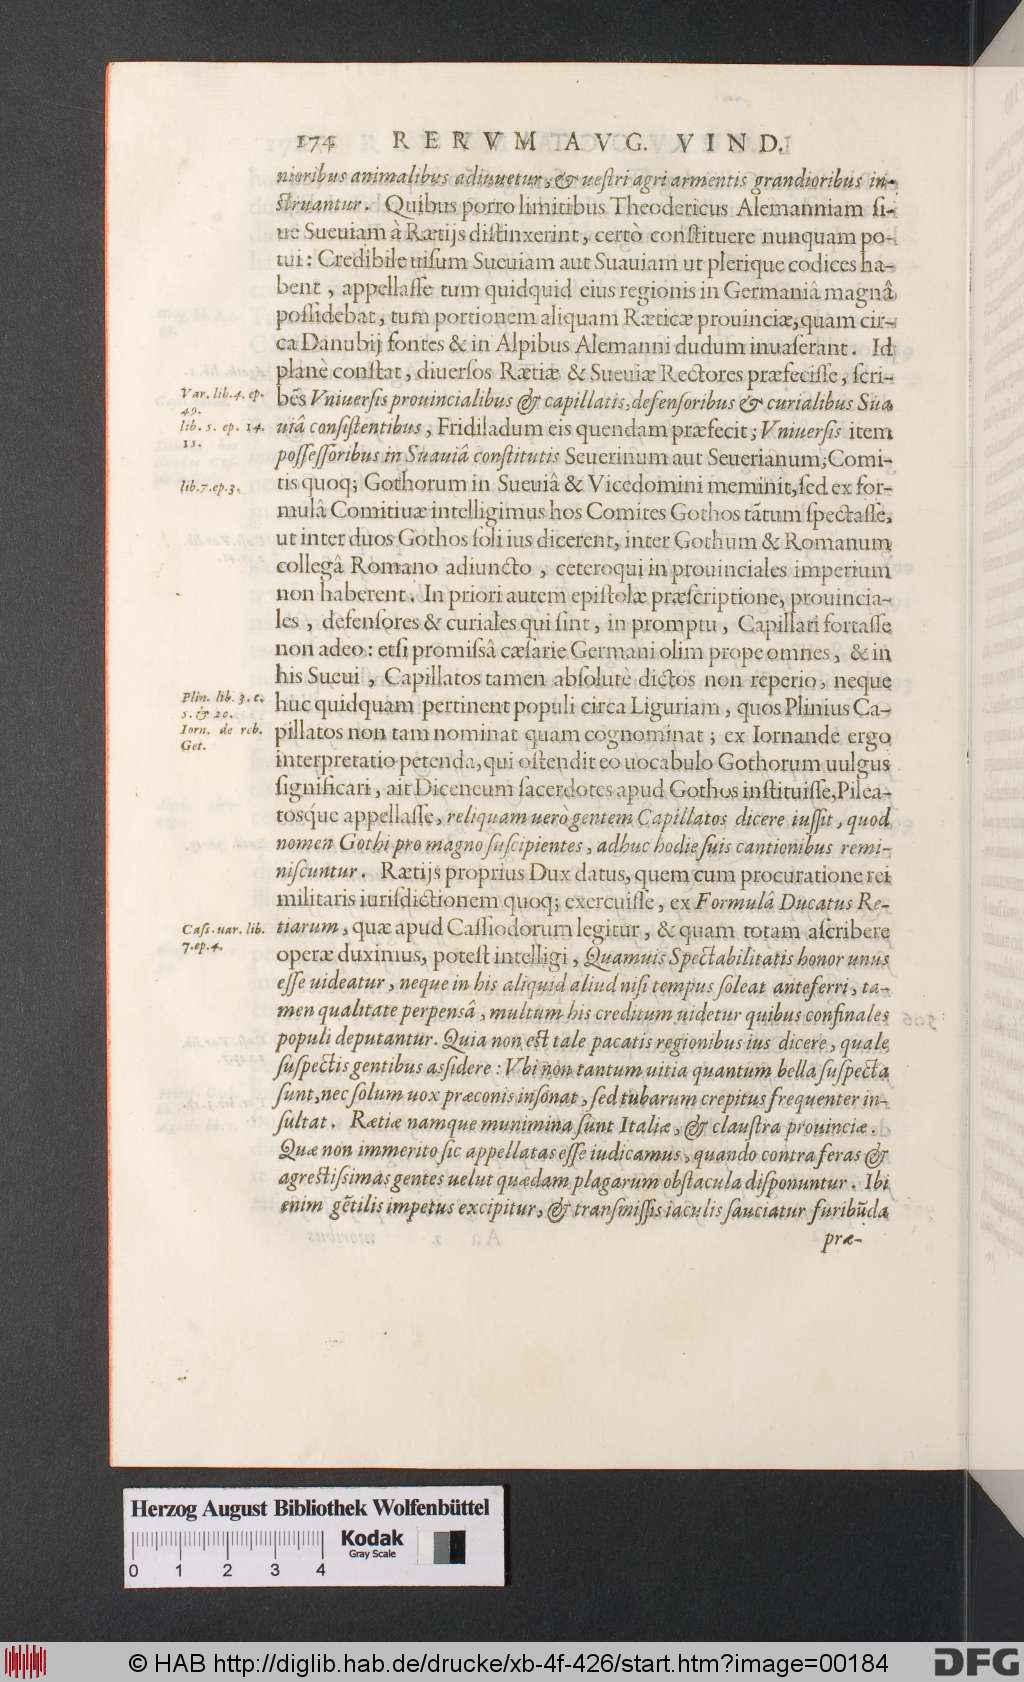 174 RERVM AVG. VIND.
nioribus animalibus adiuuetur, & uestri agri armentis grandioribus in-
struantur. Quibus porro limitibus Theodericus Alemanniam si-
ue Sueuiam à Rætijs distinxerint, certò constituere nunquam po-
tui: Credibile uisum Sueuiam aut Suauiam ut plerique codices ha-
bent, appellasse tum quidquid eius regionis in Germaniâ magnâ
possidebat, tum portionem aliquam Ræticæ prouinciæ, quam cir-
ca Danubij fontes & in Alpibus Alemanni dudum inuaserant. Id
planè constat, diuersos Rætiæ & Sueuiæ Rectores præfecisse, scri-
Var. lib. 4. ep.
49.
bẽs Vniuersis prouincialibus & capillatis, defensoribus & curialibus Sua
lib. 5. ep. 14.
15.
uiâ consistentibus, Fridiladum eis quendam præfecit; Vniuersis item
possessoribus in Suauiâ constitutis Seuerinum aut Seuerianum; Comi-
lib. 7. ep. 3.
tis quoq; Gothorum in Sueuiâ & Vicedomini meminit, sed ex for-
mulâ Comitiuæ intelligimus hos Comites Gothos tãtum spectasse,
ut inter duos Gothos soli ius dicerent, inter Gothum & Romanum
collegâ Romano adiuncto, ceteroqui in prouinciales imperium
non haberent. In priori autem epistolæ præscriptione, prouincia-
les, defensores & curiales qui sint, in promptu, Capillati fortasse
non adeo: etsi promissâ cæsarie Germani olim prope omnes, & in
his Sueui, Capillatos tamen absolutè dictos non reperio, neque
Plin. lib. 3. c.
5. & 20.
huc quidquam pertinent populi circa Liguriam, quos Plinius Ca-
Iorn. de reb.
Get.
pillatos non tam nominat quam cognominat; ex Iornande ergo
interpretatio petenda, qui ostendit eo uocabulo Gothorum uulgus
significari, ait Diceneum sacerdotes apud Gothos instituisse, Pilea-
tosq́ue appellasse, reliquam uerò gentem Capillatos dicere iussit, quod
nomen Gothi pro magno suscipientes, adhuc hodie suis cantionibus remi-
niscuntur. Rætijs proprius Dux datus, quem cum procuratione rei
militaris iurisdictionem quoq; exercuisse, ex Formulâ Ducatus Re-
Cass. uar. lib.
7. ep. 4.
tiarum, quæ apud Cassiodorum legitur, & quam totam ascribere
operæ duximus, potest intelligi, Quamuis Spectabilitatis honor unus
esse uideatur, neque in his aliquid aliud nisi tempus soleat anteferri, ta-
men qualitate perpensâ, multum his creditum uidetur quibus confinales
populi deputantur. Quia non est tale pacatis regionibus ius dicere, quale
suspectis gentibus assidere: Vbi non tantum uitia quantum bella suspecta
sunt, nec solum uox præconis insonat, sed tubarum crepitus frequenter in-
sultat. Rætiæ namque munimina sunt Italiæ, & claustra prouinciæ.
Quæ non immerito sic appellatas esse iudicamus, quando contra feras &
agrestissimas gentes uelut quædam plagarum obstacula disponuntur. Ibi
enim gẽtilis impetus excipitur, & transmissis iaculis sauciatur furibũda
præ-
Herzog August Bibliothek Wolfenbüttel
Kodak
Gray Scale
0 1 2 3 4
© HAB http://diglib.hab.de/drucke/xb-4f-426/start.htm?image=00184
DFG